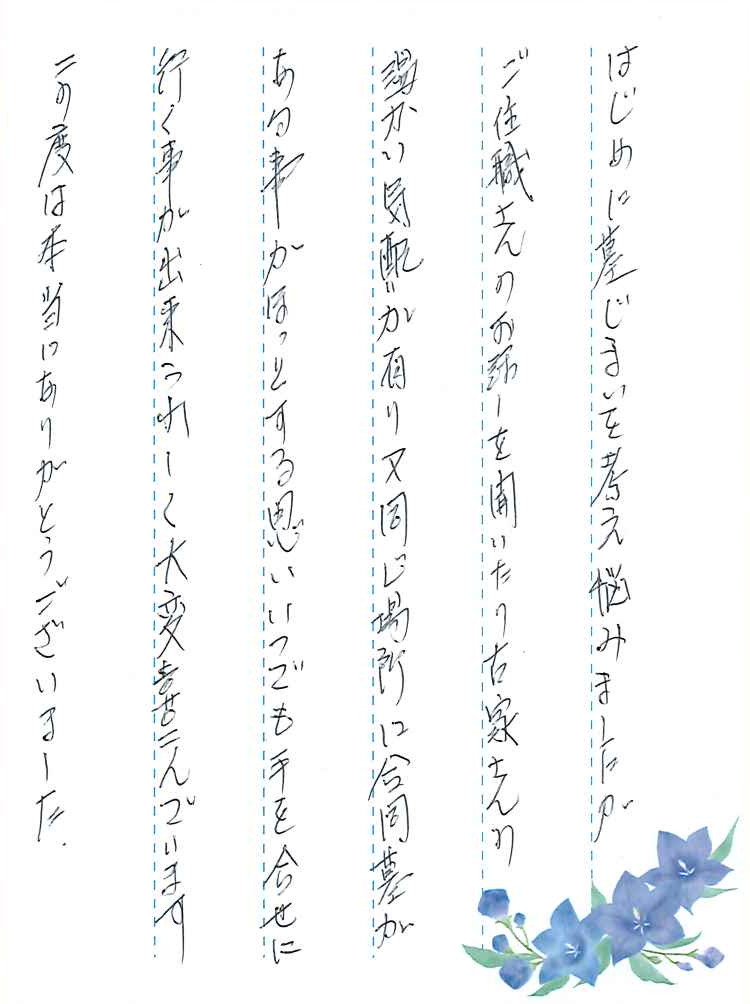 はじめに墓じまいを考え悩みましたが
ご住職さんのお話しを聞いたり古家さんの
温かい気配りが有り又同じ場所に合同墓が
ある事がほっとする思いいつでも手を合せに
行く事が出来うれしく大変喜こんでいます
この度は本当にありがとうございました.